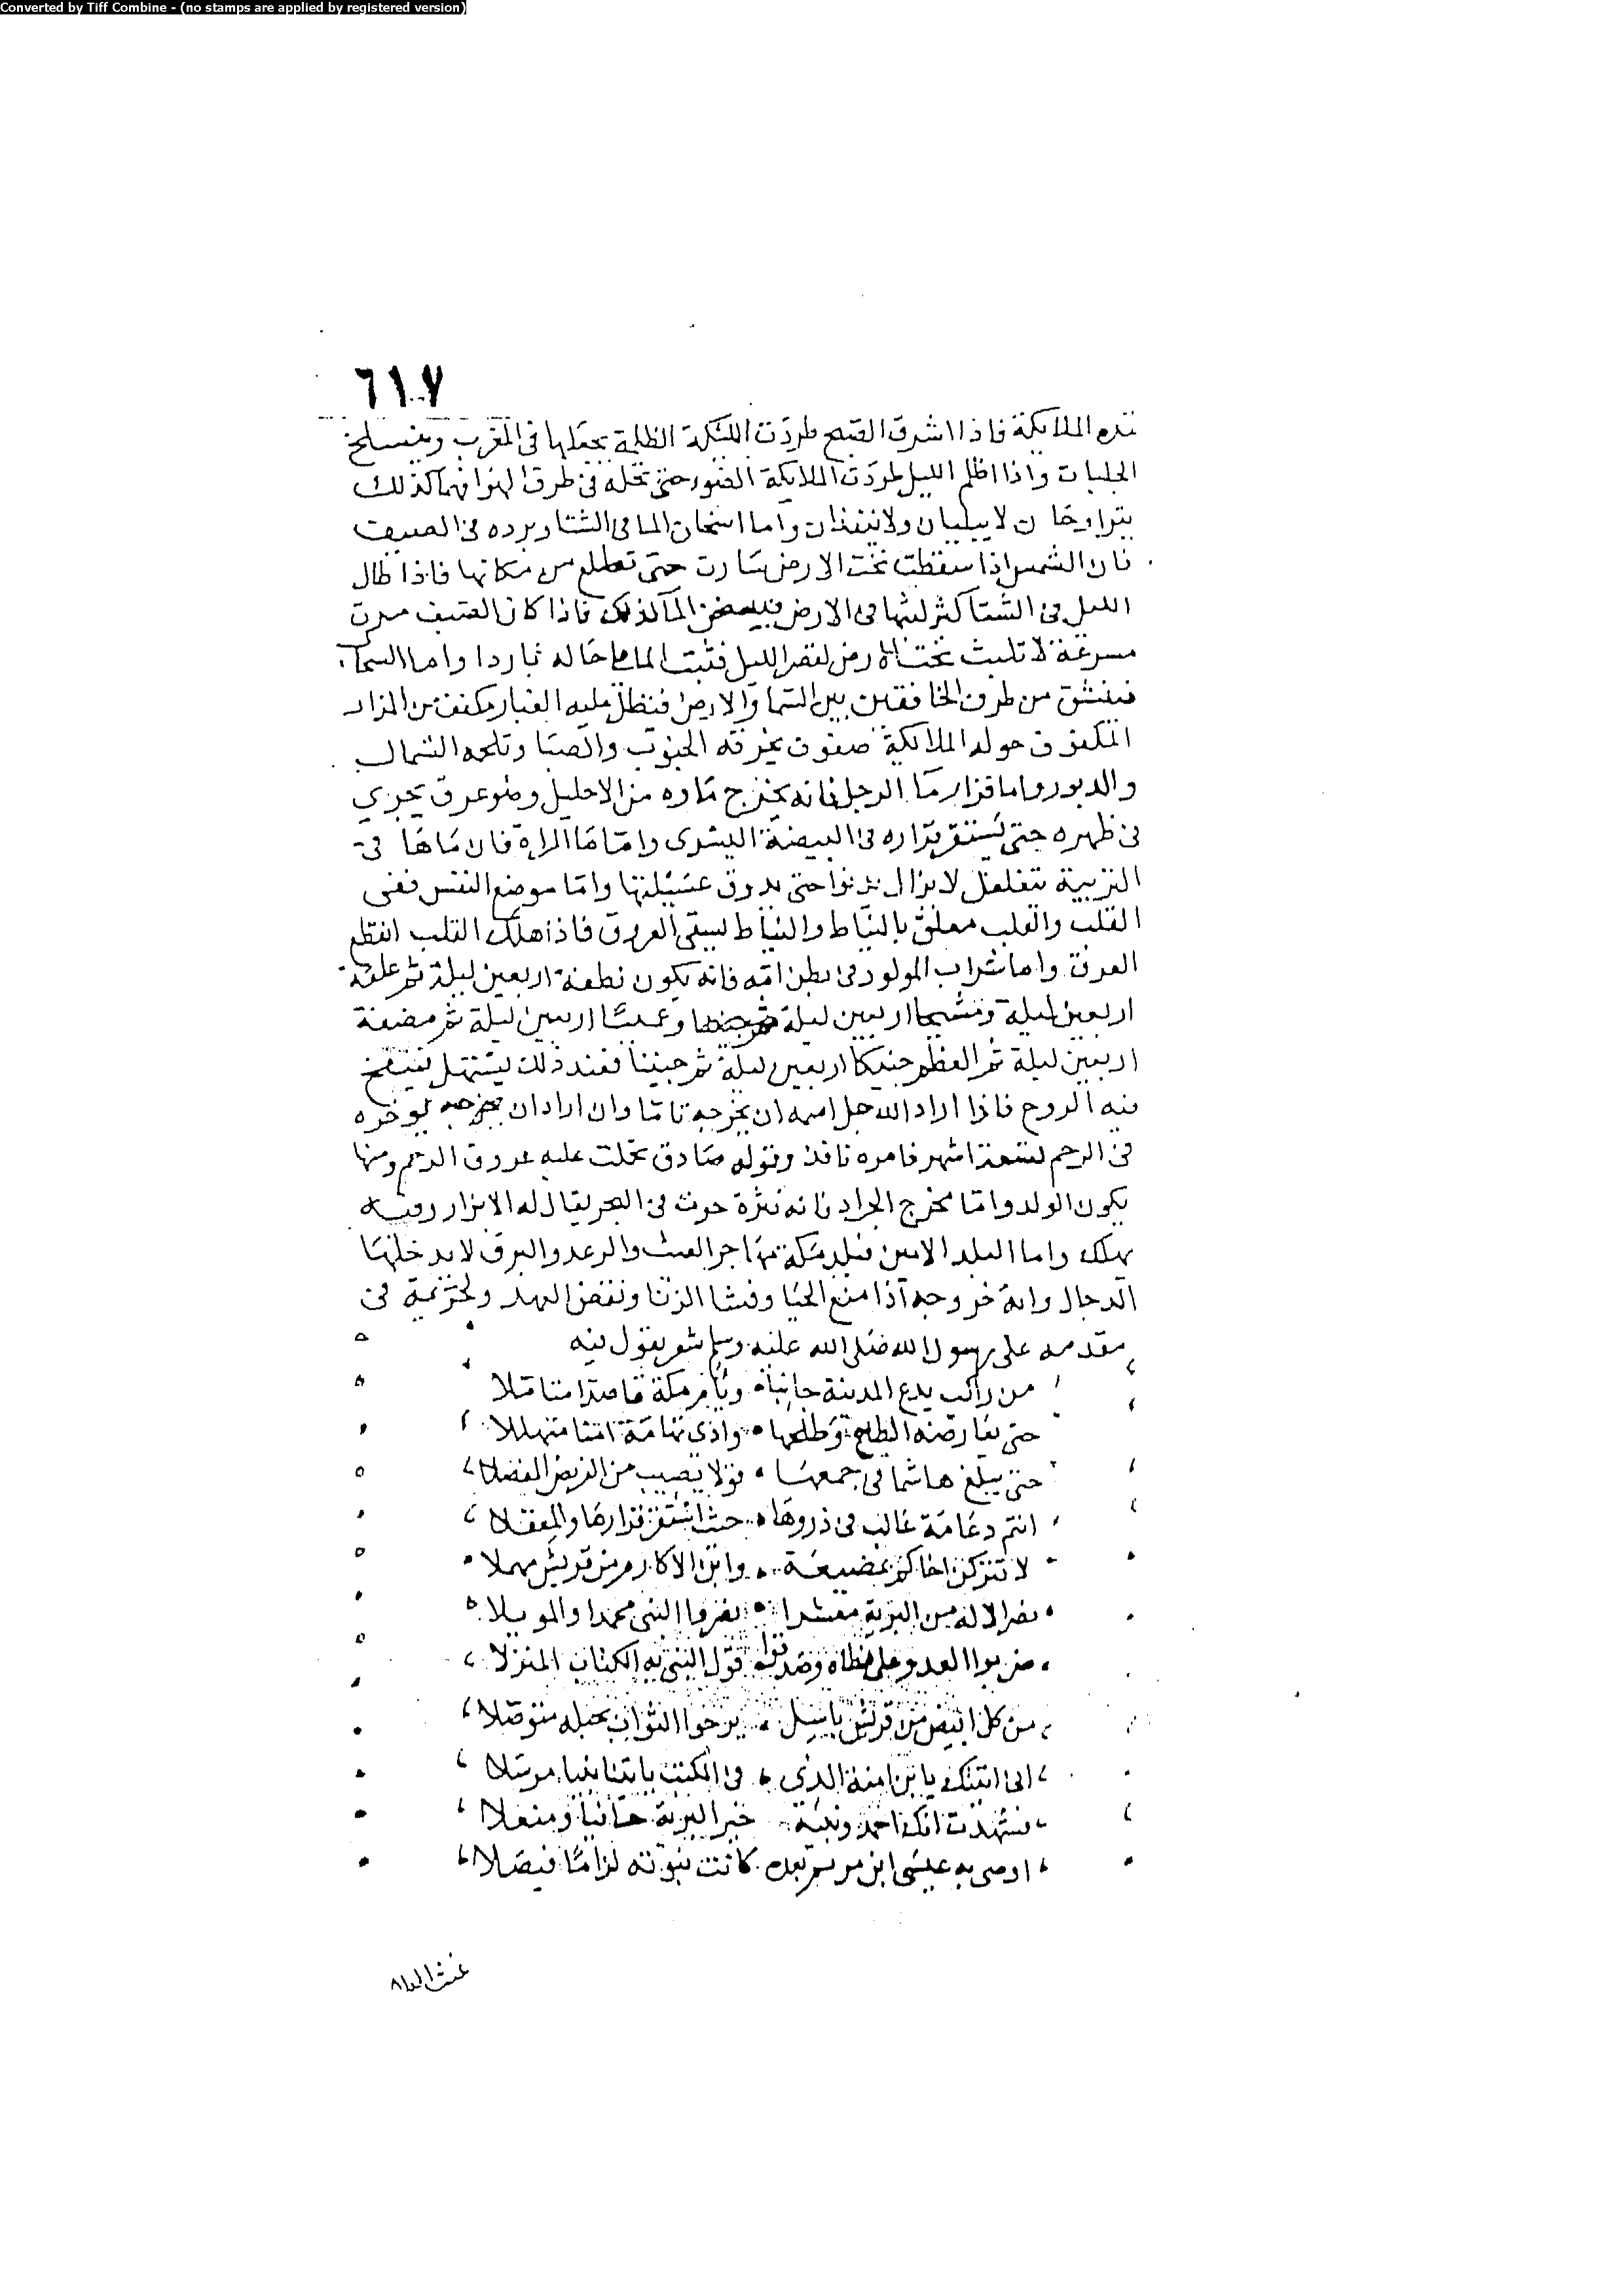 Converted by Tiff Combine - (no stamps are applied by registered version)
٦١٧
الملايكة فاذا اشرق الصبح طردت الملائكة الظلمة بجعلها في المغرب وينسلخ
الجلبات واذا اظلم الليل طردت الملايكة الضوء حتى تحله في طرف الهوا فهما كذلك
يتراوحان لا يبليان ولا ينفذان واما اسخان الما في الشتا وبرده في الصيف
فان الشمس اذا سقطت تحت الارض سارت حتى تطلع من مكانها فاذا طال
الليل في الشتا كثر لبثها في الارض المآ لذلك فاذا كان الصيف مرت
مسرعة لا تلبث تحت الارض لقصر الليل فثبت الما على حاله باردا واما السحاب
فينشق من طرف الخافقين بين السما والارض فتظل عليه الغبار مكفف من المزاد
المكفوف حوله الملايكة صفوف يخرقه الجنوب والصبا وتلحمه الشمال
والدبور واما قرار ما الرجل فانه يخرج ماوه من الاحليل وهو عرق يجري
في ظهره حتى يستقر قراره في البيضة اليسرى واما ما المراة فان ماها في
التريبة يتغلغل لا يزال يدنوا حتى يدوق عسيلتها واما موضع النفس ففي
القلب والقلب معلق بالنياط والنياط يسقي العروق فاذا هلك القلب انقطع
العرق واما شراب المولود في بطن امه فانه يكون نطفة اربعين ليلة ثم علقة
اربعين ليلة ومشيجا اربعين ليلة وعميسا اربعين ليلة ثم مضغة
اربعين ليلة ثم العظم حنيكا اربعين ليلة ثم جنينا فعند ذلك يستهل فينفخ
فيه الروح فاذا اراد الله جل اسمه ان يخرجه تاما وان اراد ان يوخره
في الرحم تسعة اشهر فامره نافذ وقوله صادق تحلت عليه عروق الرحم ومنها
يكون الولد واما مخرج الجراد فانه نثرة حوت في البحر يقال له الابزار وفيه
يهلك واما البلد الامين فبلد مكة مهاجر الغيث والرعد والبرق لا يدخلها
الدجال واية خروجه اذا منع الحيا وفشا الزنا ونقض العهد ولخزيمة في
مقدمه على رسول الله صلى الله عليه وسلم شعر يقول فيه
من راكب يدع المدينة جانبا ويام مكة قاصدا متاملا
حتى يعارضه الطلح وطلحها وادى تهامة امنا متهللا
حتى يبلغ هاشما في جمعها قولا يصيب من القريض المفصلا
انتم دعامة غالب في ذروها حيث استقر قرارها والمعقلا
لا تتركن اخاكم بمضيعة وابن الاكارم من قريش مهملا
نصر الاله من البرية معشرا نصروا النبي محمدا والموبلا
ضربوا العدو على وصدقوا قول النبي به الكتاب المنزلا
من كل ابيض من قريش باسل يرجوا الثواب بحبله متوصلا
اني اتيتك يا ابن امنة الذي في الكتب ياتينا نبيا مرسلا
فشهدت انك احمد ونبيه خير البرية حافيا ومنعلا
اوصى به عيسى ابن مريم بعده كانت نبوته لزاما فيصلا